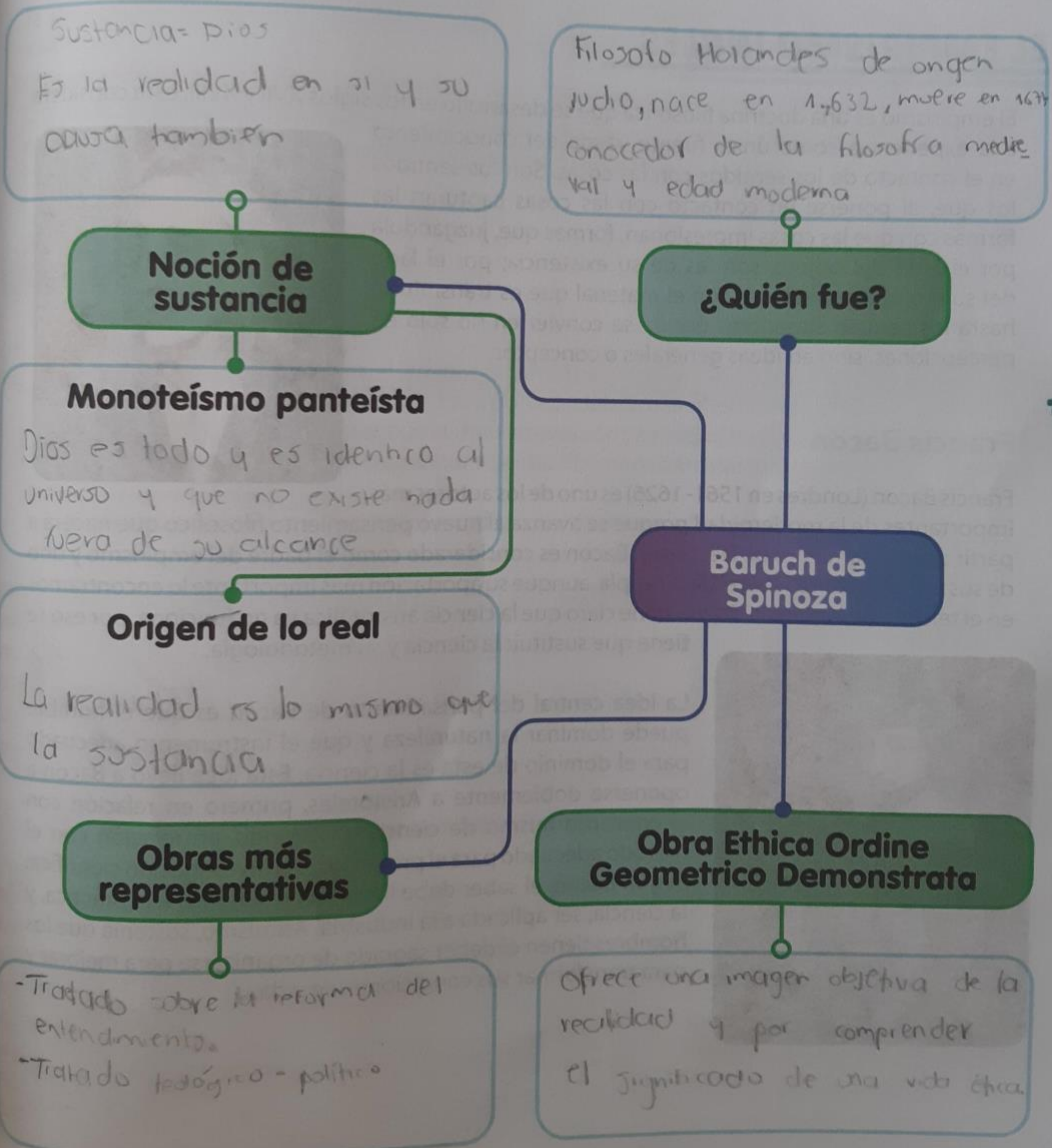 Sustancia= Dios
Es la realidad en si y su
causa también
Noción de
sustancia
Monoteísmo panteísta
Dios es todo y es identico al
universo y que no existe nada
fuera de su alcance
Origen de lo real
La realidad es lo mismo que
la sustancia
Obras más
representativas
-Tratado sobre la reforma del
entendimiento.
-Tratado teológico-político
Filosofo Holandes de origen
judio, nace en 1,632, muere en
conocedor de la filosofía medie
val y edad moderna
¿Quién fue?
Baruch de
Spinoza
Obra Ethica Ordine
Geometrico Demonstrata
Ofrece una imagen objetiva de la
realidad y por comprender
el significado de una vida ética